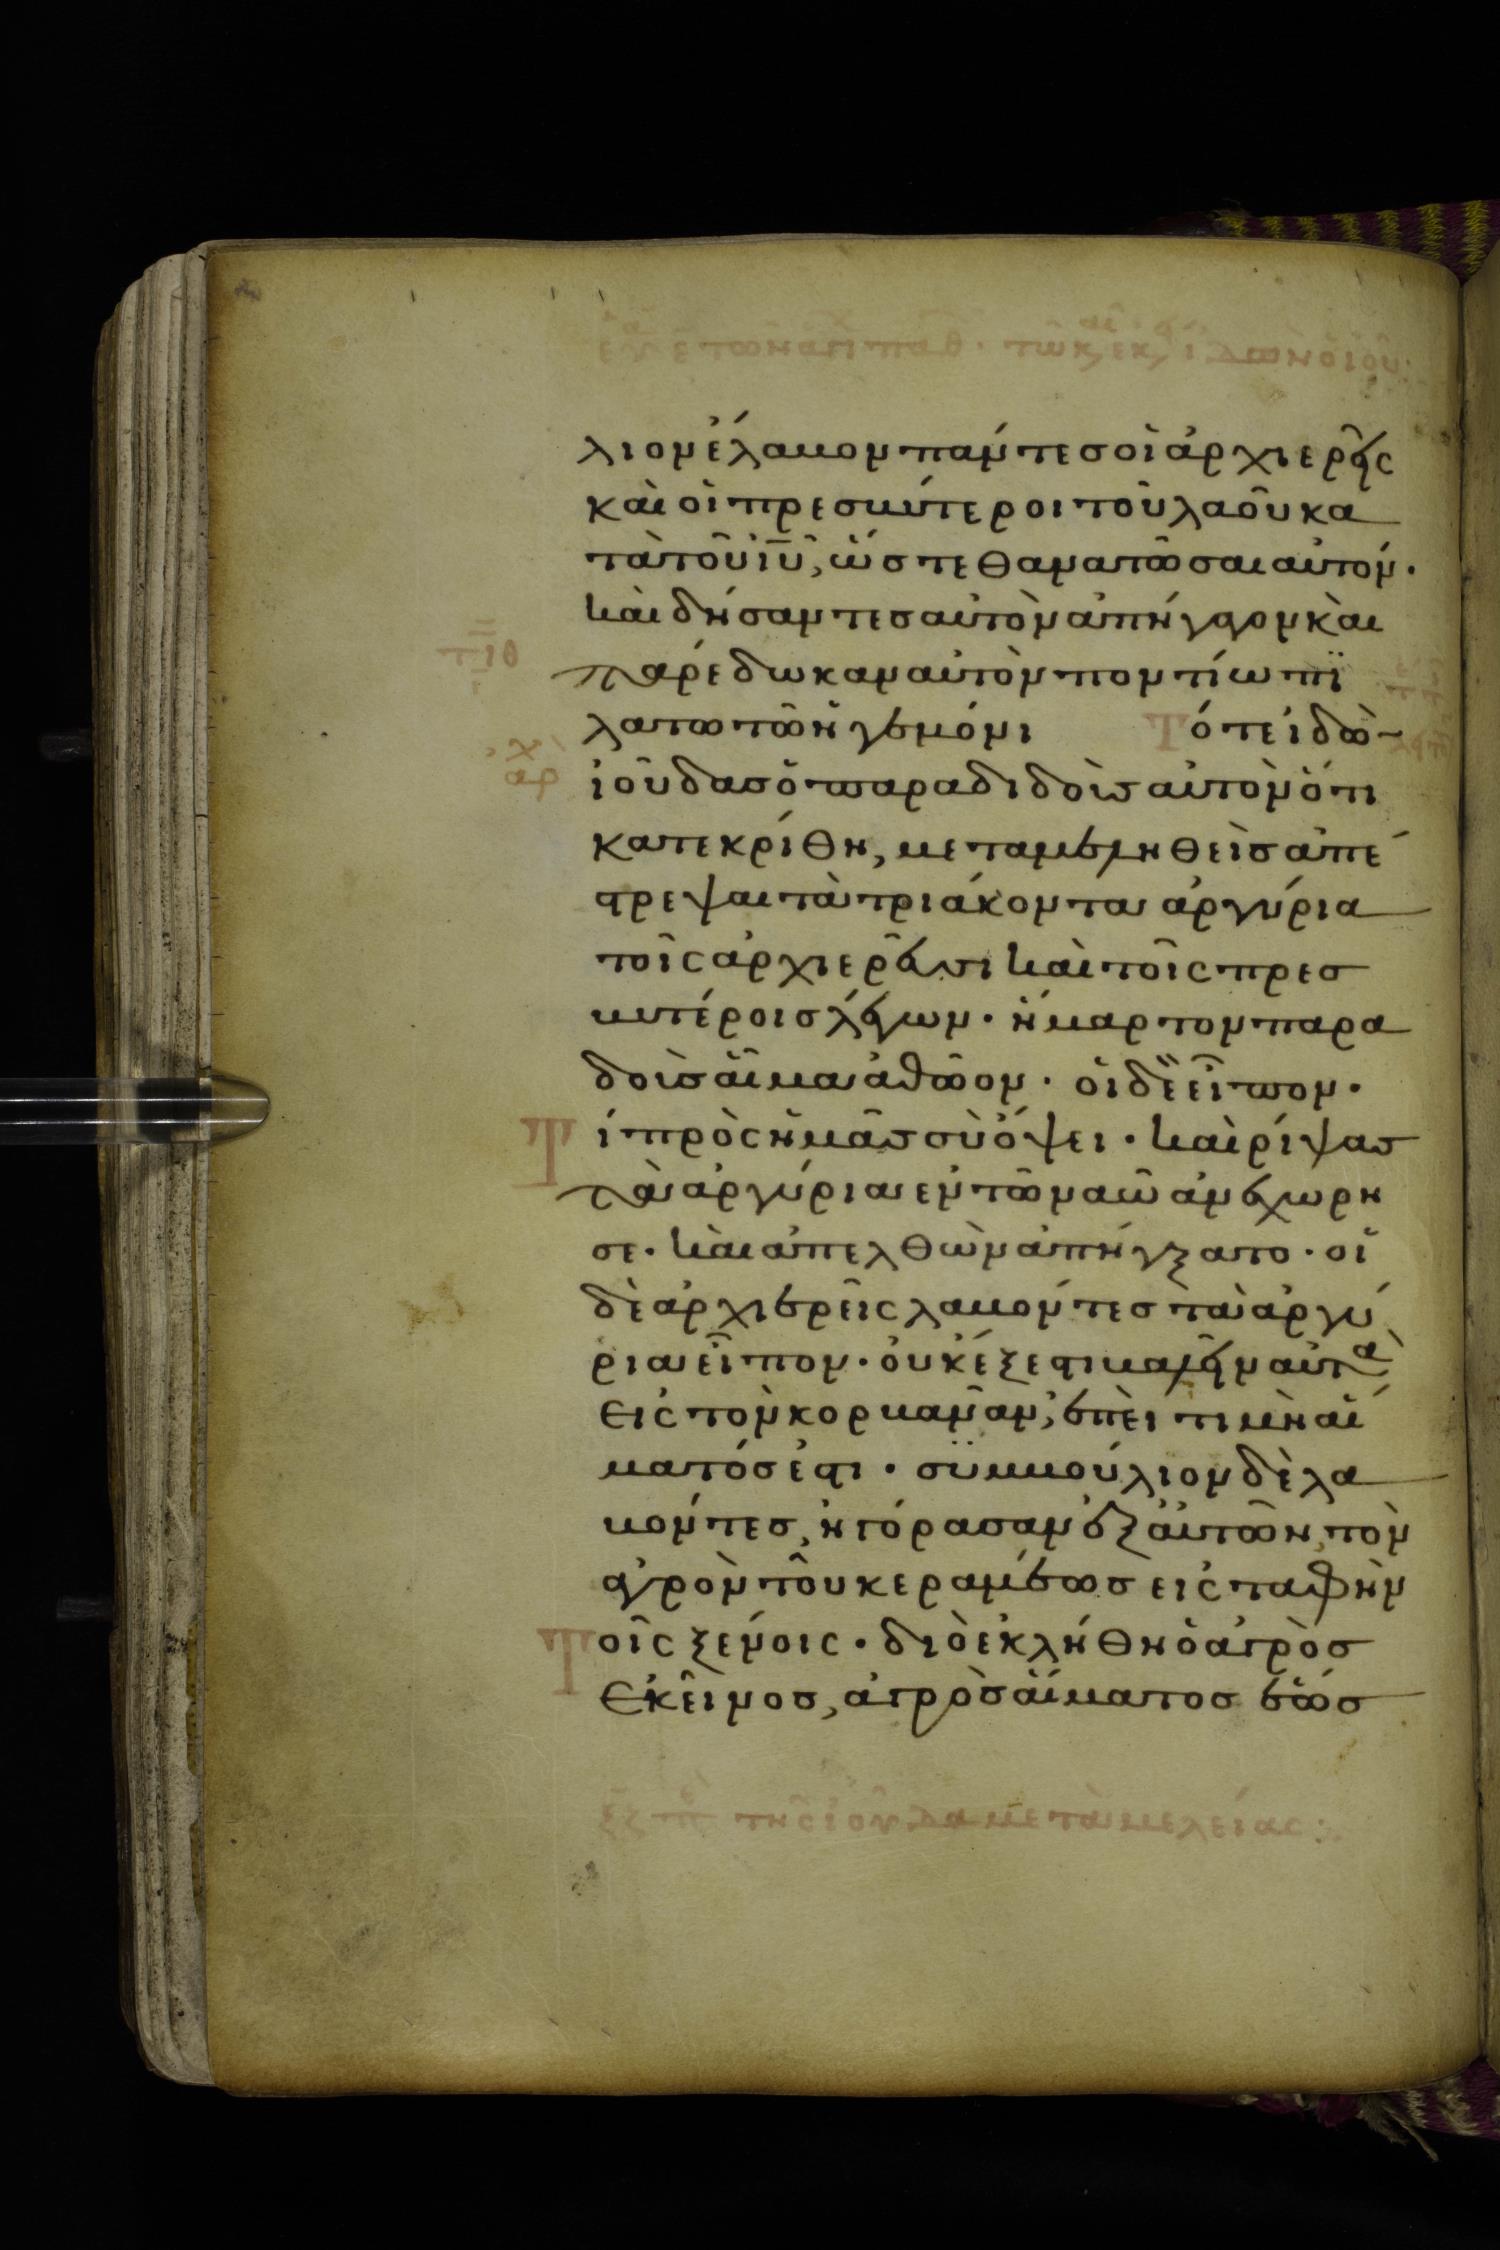 λιον ἔλαβον πάντες οἱ ἀρχιερεῖς
καὶ οἱ πρεσβύτεροι τοῦ λαοῦ κα
τὰ τοῦ ἰῦ, ὥστε θανατῶσαι αὐτόν·
καὶ δήσαντες αὐτὸν ἀπήγαγον καὶ
παρέδωκαν αὐτὸν ποντίω πϊ
λάτω τῶ ἡγεμόνι Τότε ἰδὼ
ἰούδας ὁ παραδιδοὺς αὐτὸν ὅτι
κατεκρίθη, μεταμεληθεὶς ἀπέ
στρεψαι τὰ τριάκοντα ἀργύρια
τοῖς ἀρχιερεῦσι καὶ τοῖς πρεσ
βυτέροις λέγων· ἥμαρτον παρα
δοὺς αἷμα ἀθῶον· οἱ δὲ εἶπον·
Τί πρὸς ἡμᾶς σὺ ὄψει· καὶ ρίψας
τὰ ἀργύρια ἐν τῶ ναῶ ἀνεχώρη
σε· καὶ ἀπελθὼν ἀπήγξατο· οἱ
δὲ ἀρχιερεῖς λαβόντες τὰ ἀργύ
ρια εἶπον· οὐκ ἔξεστι βαλεῖν αὐτὰ
εἰς τὸν κορβανᾶν, ἐπεὶ τιμὴ αἵ
ματός ἐστι· συμβούλιον δὲ λα
βόντες, ἠγόρασαν ἐξ αὐτῶν τὸν
ἀγρὸν τοῦ κεραμέως εἰς ταφὴν
Τοῖς ξένοις· διὸ ἐκλήθη ὁ ἀγρὸς
ἐκεῖνος, ἀγρὸς αἵματος ἕως
τῆς ἰούδα μεταμελείας: